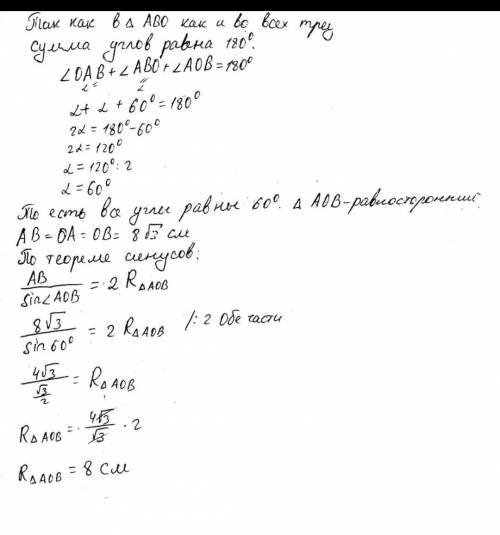 Так как в Δ ABO как и во всех треу
сумма углов равна 180°.
∠OAB + ∠ABO + ∠AOB = 180°
α α
α + α + 60° = 180°
2α = 180° - 60°
2α = 120°
α = 120° : 2
α = 60°
То есть все углы равны 60°. Δ AOB - равносторонний.
AB = OA = OB = 8√3 см
По теореме синусов:
AB / sin∠AOB = 2 R Δ AOB
8√3 / sin 60° = 2 R Δ AOB /: 2 Обе части
4√3 / (√3/2) = R Δ AOB
R Δ AOB = 4√3 / √3 · 2
R Δ AOB = 8 см